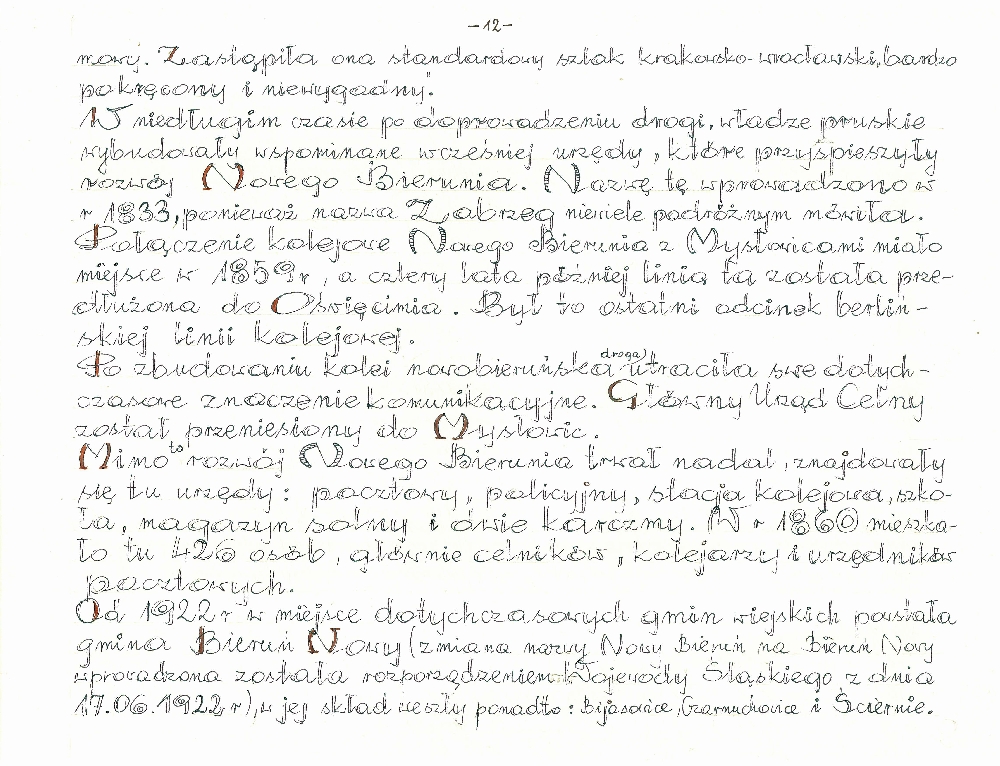 -12-
mowy. Zastąpiła ona standardowy szlak krakowsko-wrocławski, bardzo
pokręcony i niewygodny."
W niedługim czasie po doprowadzeniu drogi, władze pruskie
wybudowały wspominane wcześniej urzędy, które przyśpieszyły
rozwój Nowego Bierunia. Nazwę tę wprowadzono w
r 1833, ponieważ nazwa Zabrzeg niewiele podróżnym mówiła.
Połączenie kolejowe Nowego Bierunia z Mysłowicami miało
miejsce w 1859 r, a cztery lata później linia ta została prze-
dłużona do Oświęcimia. Był to ostatni odcinek berliń-
skiej linii kolejowej.
Po zbudowaniu kolei nowobieruńska droga utraciła swe dotych-
czasowe znaczenie komunikacyjne. Główny Urząd Celny
został przeniesiony do Mysłowic.
Mimo to rozwój Nowego Bierunia trwał nadal, znajdowały
się tu urzędy: pocztowy, policyjny, stacja kolejowa, szko-
ła, magazyn solny i dwie karczmy. W r 1860 mieszka-
ło tu 426 osób, głównie celników, kolejarzy i urzędników
pocztowych.
Od 1922 r w miejsce dotychczasowych gmin wiejskich powstała
gmina Bieruń Nowy (zmiana nazwy Nowy Bieruń na Bieruń Nowy
wprowadzona została rozporządzeniem Wojewody Śląskiego z dnia
17.06.1922 r), w jej skład weszły ponadto: Bijasowice, Czarnuchowice i Ściernie.